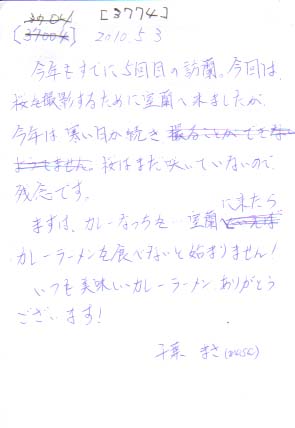 3704 [3774]
[37004] 2010.5.3
今年もすでに5回目の訪蘭。今回は、
桜を撮影するために室蘭へ来ましたが、
今年は寒い日が続き 撮ることができな
ようでません。桜はまだ咲いていないので
残念です。
に来たら
まずは、カレーなっちを… 室蘭といえば
カレーラーメンを食べないと始まりません!
いつも美味しいカレーラーメン ありがとう
ございます!
千葉 まさ(MASA)